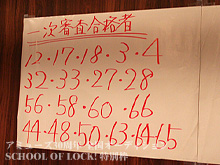 一次審査合格者
12・17・18・3・4
32・33・27・28
56・58・60・66
44・48・50・63・64・65
SCHOOL OF LOCK! 特別枠